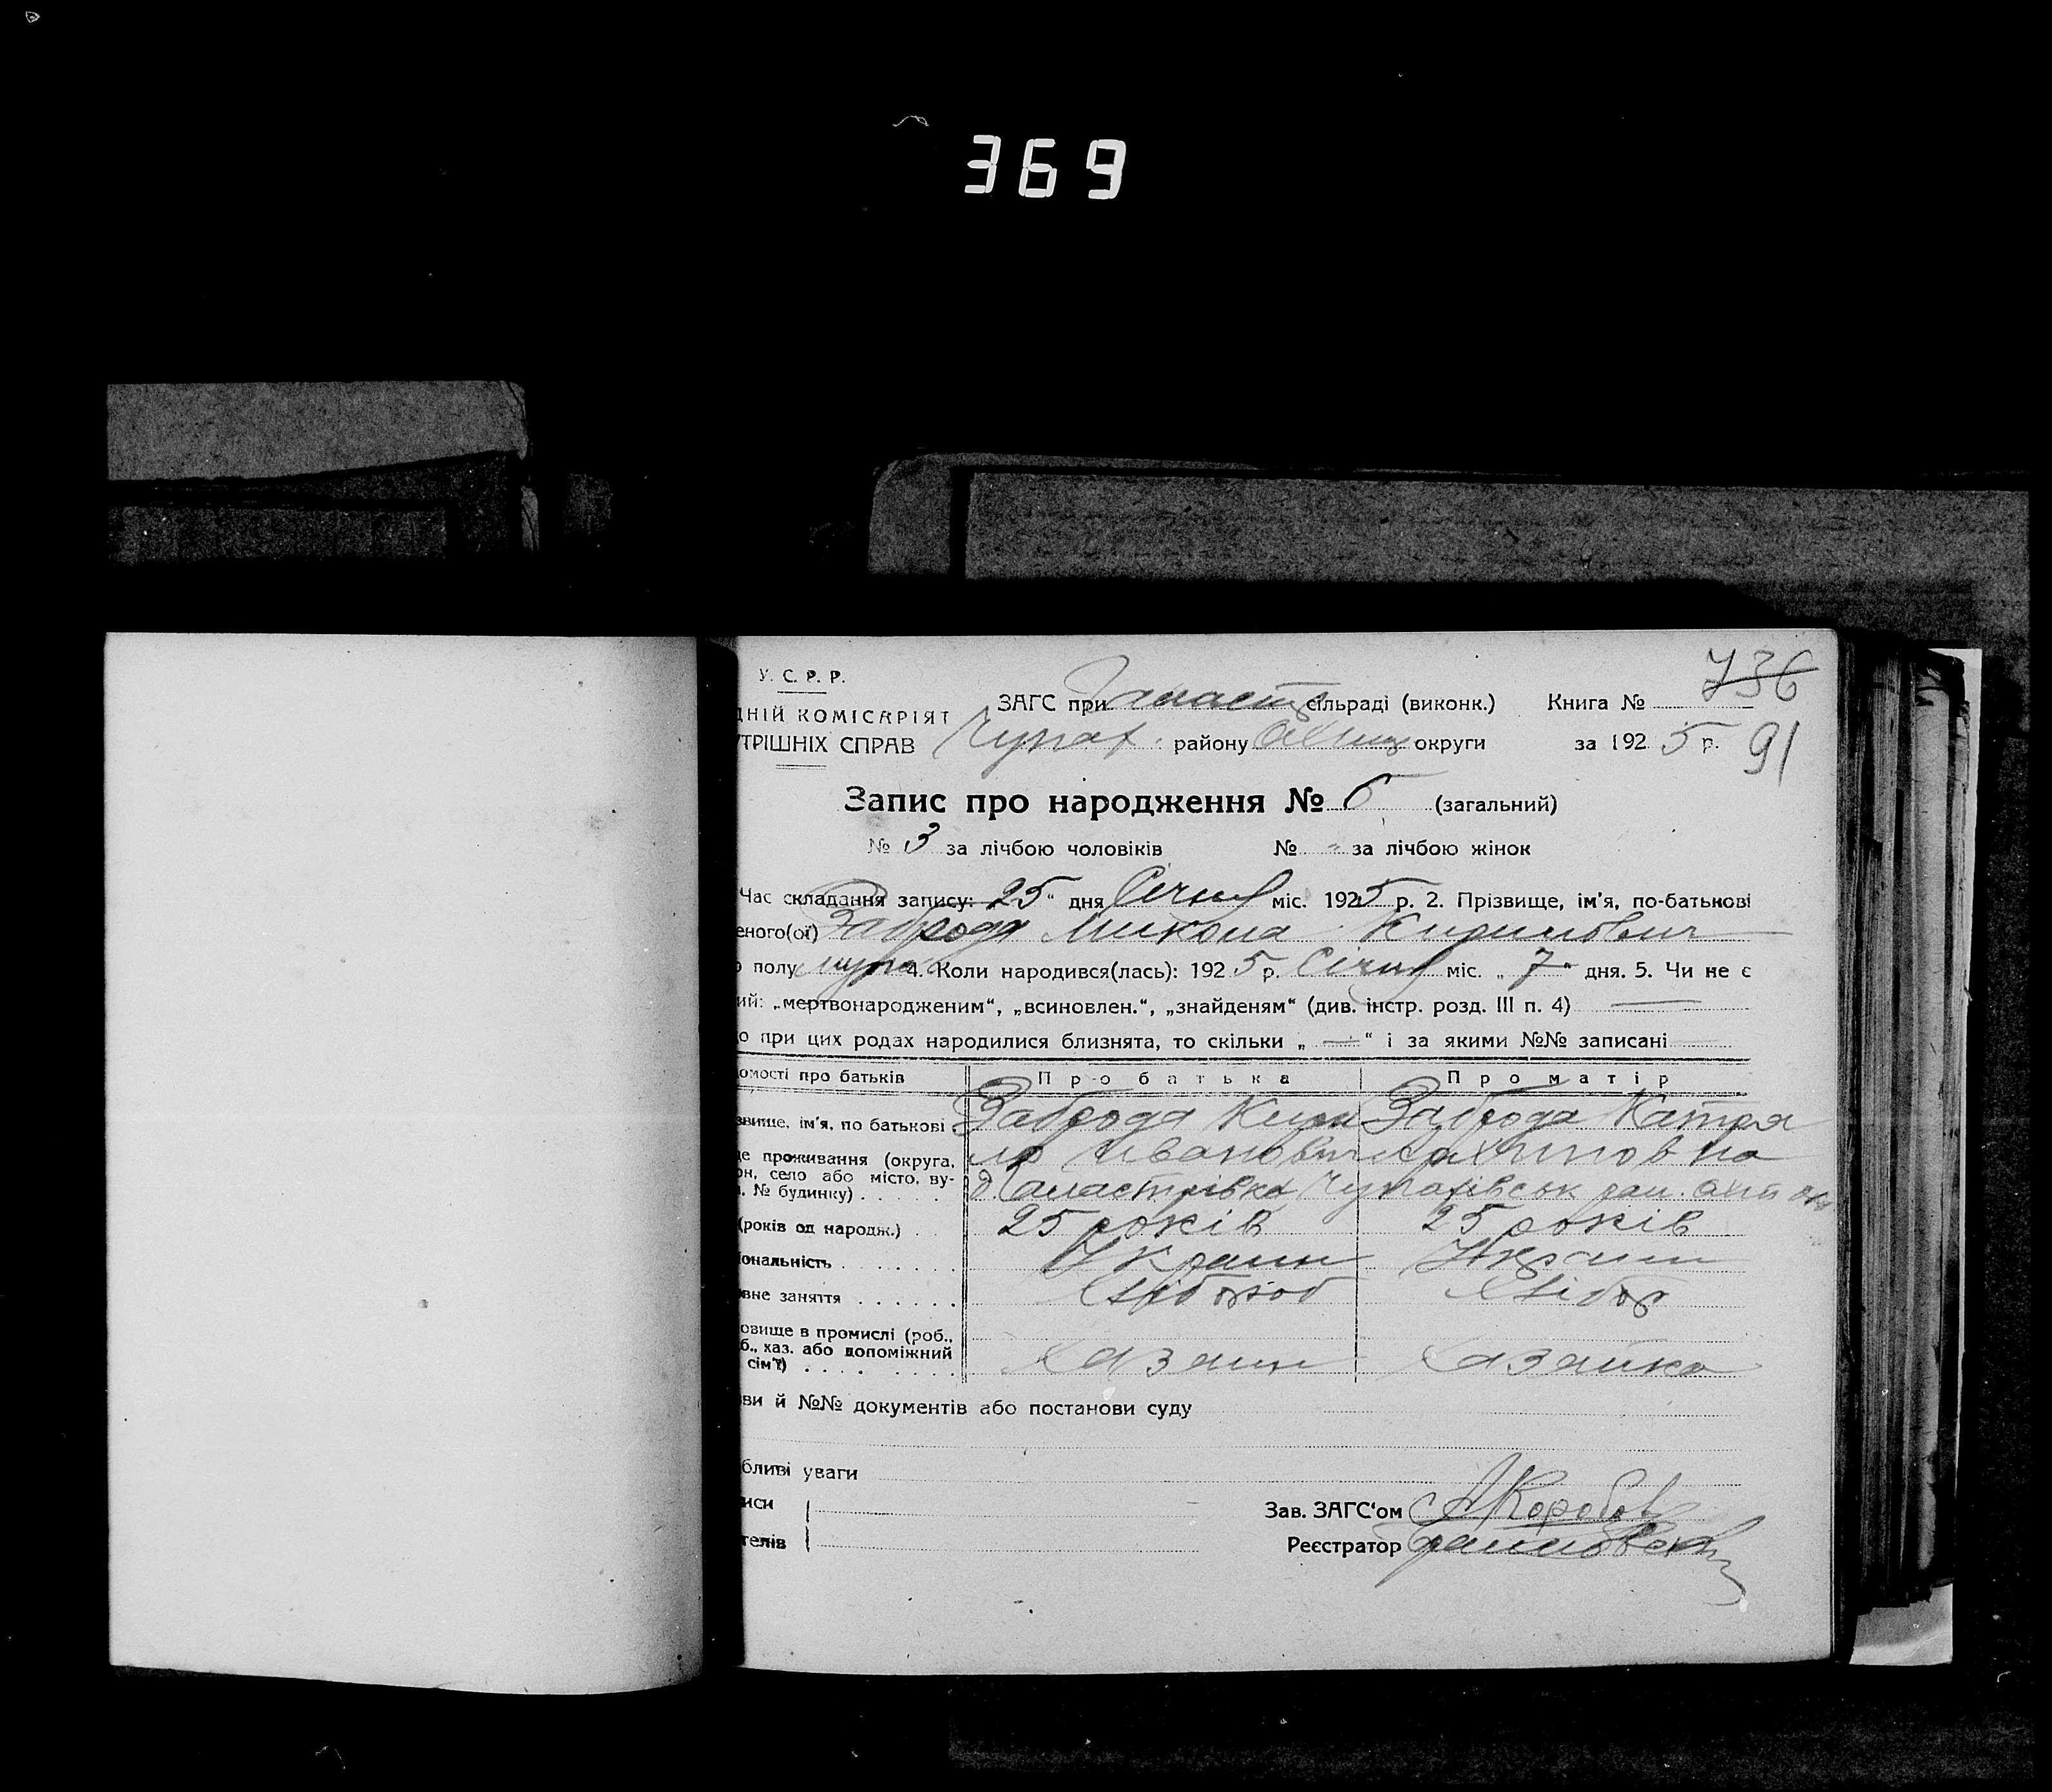 369
736
У. С. Р. Р.
ЗАГС при сільраді (виконк.) Книга №
ДНІЙ КОМІСАРІЯТ
ТРІШНІХ СПРАВ Чупах. району Охтиц округи за 1925 р. 91
Запис про народження № 6 (загальний)
№ 3 за лічбою чоловіків № - за лічбою жінок
Час складання запису: 25" дня Січня міс. 1925 р. 2. Прізвище, ім'я, по-батькові
еного(ої) Заброда Микола Кирилович
полу 4. Коли народився(лась): 1925 р. Січня міс. „ 7" дня. 5. Чи не є
ий: „мертвонародженим“, „всиновлен.“, „знайденям“ (див. інстр. розд. III п. 4) —
о при цих родах народилися близнята, то скільки „ — “ і за якими №№ записані —
омості про батьків Про батька Про матір
звище, ім'я, по батькові Заброда Кири Заброда Катря
ло Иванович
е проживання (округа,
он, село або місто, ву-
№ будинку) Чупахівськ рай.
(років од народж.) 25 років 25 років
ональність Украин Украин
вне заняття Хлібороб Хлібор
овище в промислі (роб.,
б., хаз. або допоміжний
сім'ї) Хазаин Хазайка
ви й №№ документів або постанови суду
бливі уваги
иси
Зав. ЗАГС'ом Коробов
телів
Реєстратор